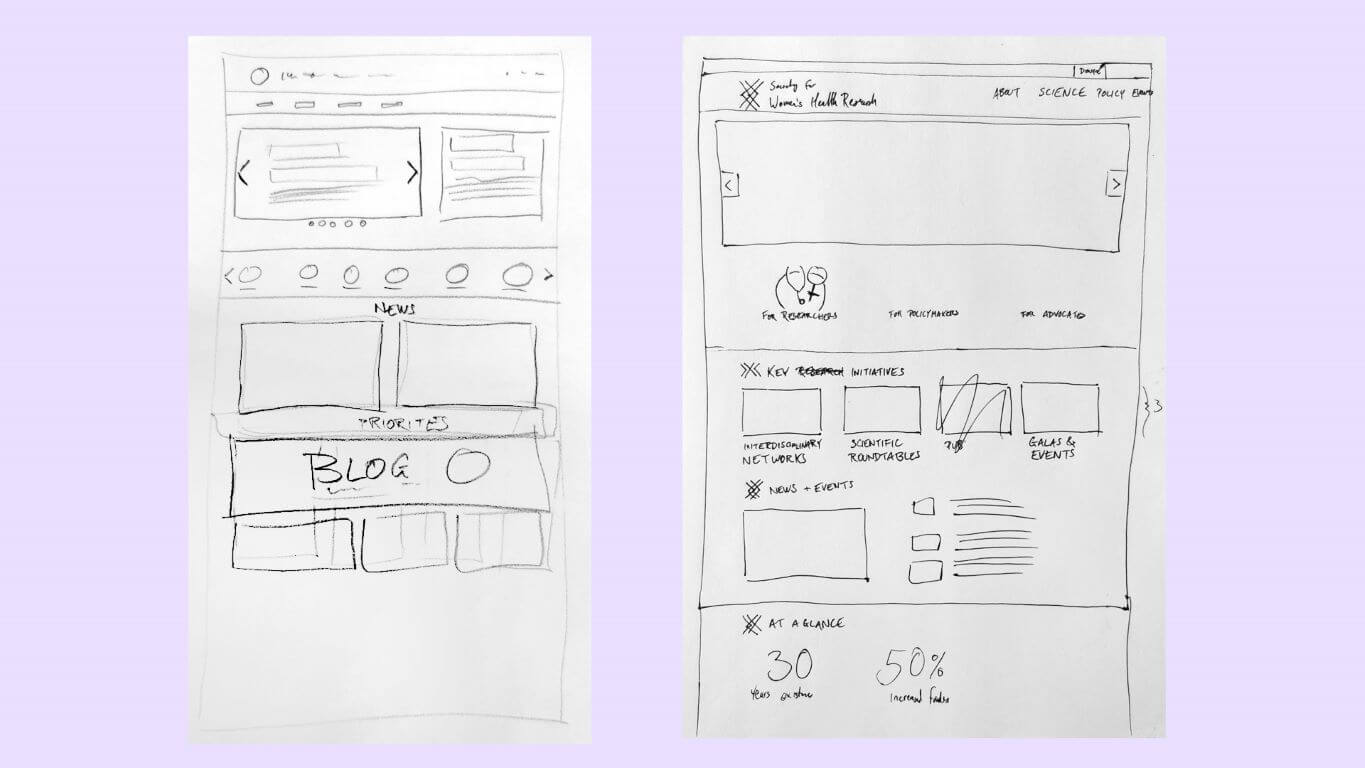 NEWS
PRIORITES
BLOG
Donate
Society For
Women's Health Research
ABOUT SCIENCE POLICY Events
FOR RESEARCHERS
FOR POLICYMAKERS
FOR ADVOCATES
KEY RESEARCH INITIATIVES
INTERDISCIPLINARY
NETWORKS
SCIENTIFIC
ROUNDTABLES
GALAS &
EVENTS
3
NEWS + EVENTS
AT A GLANCE
30
Years
50%
Increased